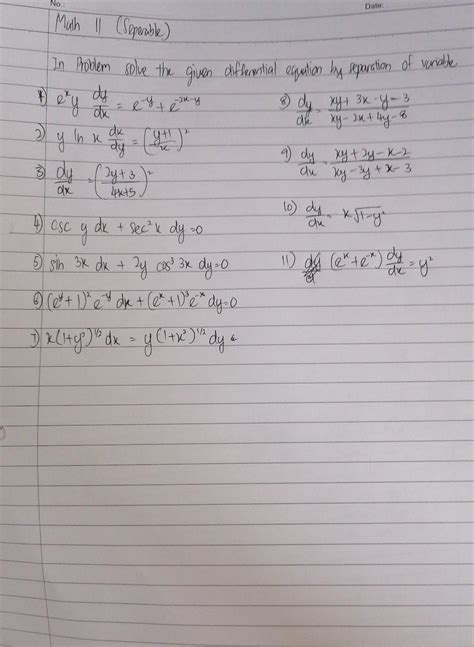 No.:
Date:
Math 11 (Separable)
In Problem solve the given differential equation by separation of variable
1) e^x y dy/dx = e^-y + e^-2x-y
2) y ln x dx/dy = ((y+1)/x)^2
3) dy/dx = ((2y+3)/(4x+5))^2
4) csc y dx + sec^2 x dy=0
5) sin 3x dx + 2y cos^3 3x dy=0
6) (e^y+1)^2 e^-y dx + (e^x+1)^3 e^-x dy=0
7) x(1+y^2)^1/2 dx = y(1+x^2)^1/2 dy
8) dy/dx = (xy+3x-y-3)/(xy-2x+4y-8)
9) dy/dx = (xy+2y-x-2)/(xy-3y+x-3)
10) dy/dx = x√(1-y^2)
11) (e^x+e^-x) dy/dx = y^2